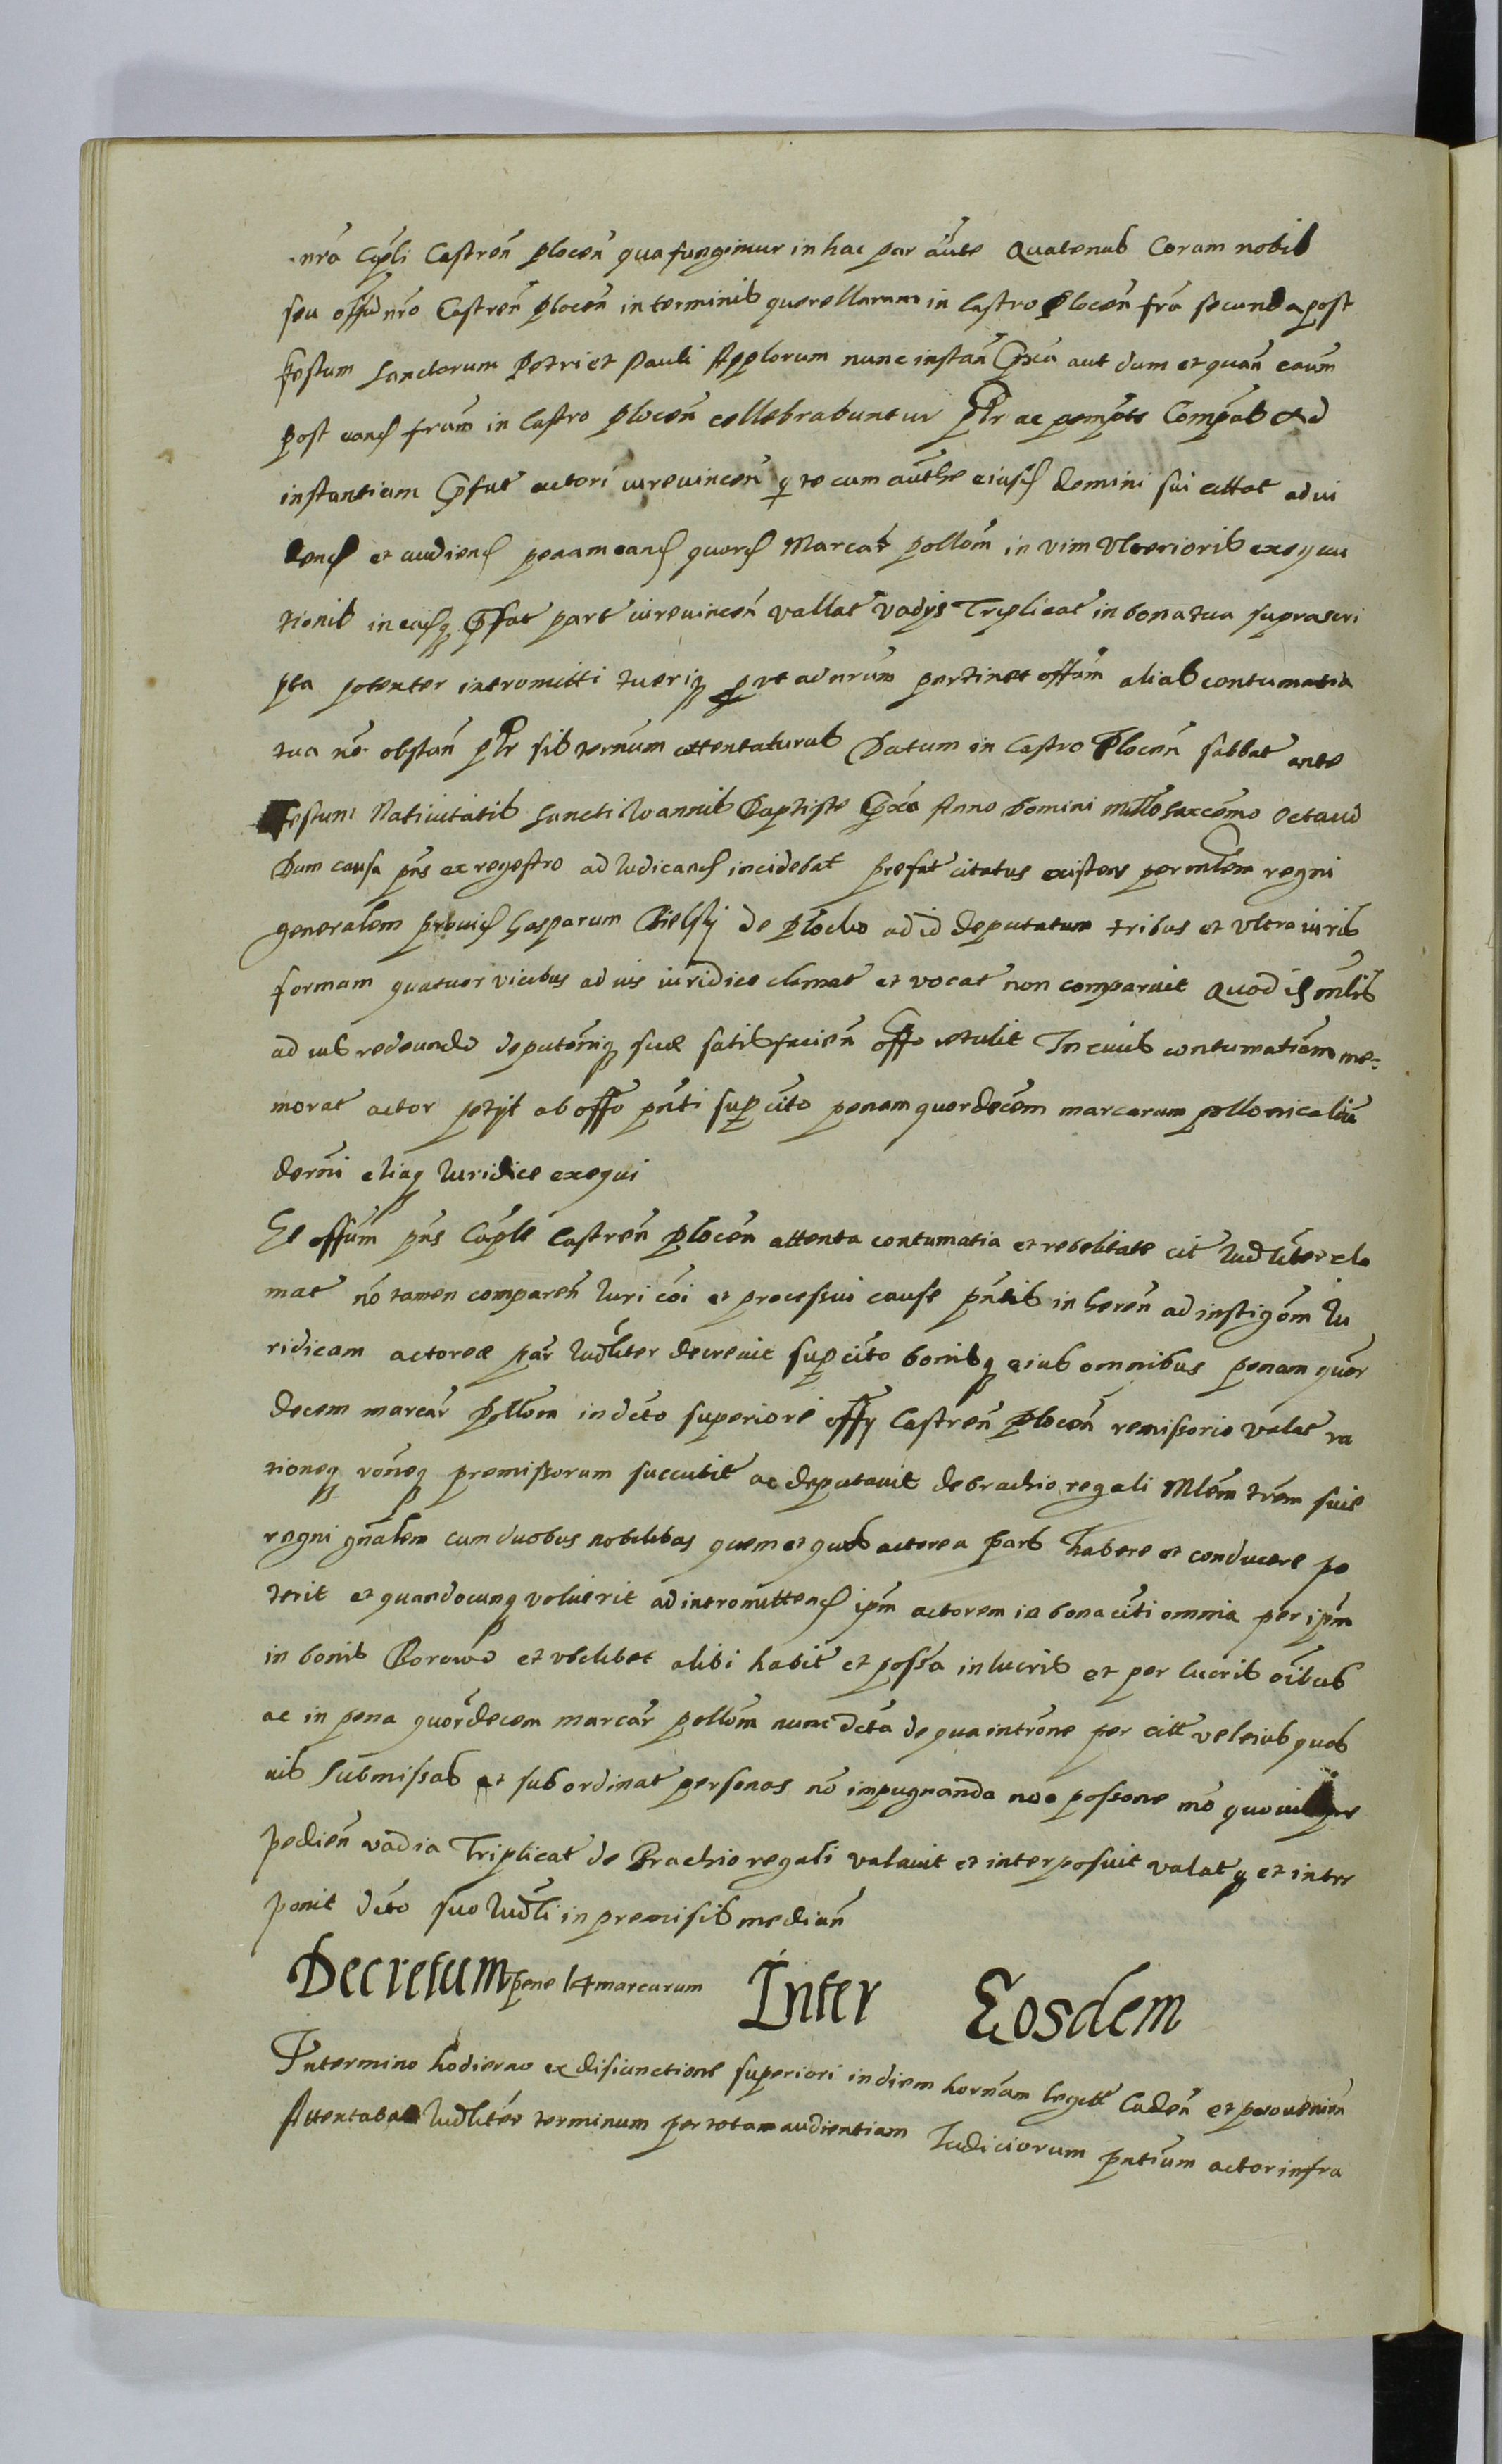 nrã Cap̃li Castreñ Plocen̄ qua fungimur in hac par aũte Quatenus Coram nobis
seu offõ nrõ Castreñ Plocen̄ in terminis querellarum in Castro Plocen̄ frã secunda post
festum Sanctorum Petri et Pauli Applorum nunc instañ aut dum et quañ eaũm
post eand feriam in Castro Plocen̄ cellebrabuntur ptr ac pempte Compas Ad
instantiam pfat actori iurevinceñ te cum authe eiusd domini sui cittat ad vi
dend et audiend penam eand quord Marcar̃ pollom̃ in vim Ulterioris exequu
tionis in eandq pfat part iurevinceñ vallat vadys Triplicat in bona tua suprascri
pta potenter intromitti tueriq prt ad nrũm pertinet offũm alias contumatia
tua nõ obstañ ptr sis termũm attentaturus Datum in Castro Plocen̄ sabbat ante
Festum Nativitatis Sancti Ioannis Baptiste Anno Domini millo sexcẽmo Octavo
Dum causa pñs ex regestro ad Iudicand incidebat prefat citatus existens per mlem regni
generalem provid Gasparum Bielsky de Plocko ad id deputatum tribus et ultra iuris
formam quatuor vicibus ad ius iuridice clamat et vocat non comparuit Quod id mlis
ad ius redeundo deputõniq sue satisfacieñ offo retulit In cuius contumatiam me=
morat actor petyt ab offo pñti sup cito penam quordecem marcarum pollonicaliũ
decerni aliaq Iuridice exequi
Et offũm pñs Caple Castreñ Plocen̄ attenta contumatia et rebelitate cit Iudliter cla
mat nõ tamen compareñ Iuri cõi et processui cause pñtis inhereñ ad instigõm Iu
ridicam actoreæ par̃ Iudliter decrevit sup cito bonisq eius omnibus penam quor
decem marcar̃ pollom̃ in dcto superiore offy Castreñ Plocen̄ remissorio valat ra
tioneq rõneq premissorum succubit ac deputavit de brachio regali Mlem trem sive
regni gñalem cum duobus nobilibus quem et quos actorea pars habere et conducere po
terit et quandocunq voluerit ad intromittend ipm actorem in bona citi omnia per ipm
in bonis Borowo et ubilibet alibi habit et possa in lucris et per lucris oibus
ac in pena quordecem marcar̃ pollom̃ nunc dcta de qua intrõne per citt vel eius quos
vis Submissas et subordinat personas nõ impugnanda noe possone mõ quovis pre
pedieñ vadia Triplicat de Brachio regali valavit et interposuit valatq et inter
ponit dcto suo Iudli in premisis mediañ
Decretum pene 14 marcarum Inter Eosdem
In termino hodierno ex disiunctione superiori in diem hornam legitt Cadeñ et proveniẽn
Attentabat Iudliter terminum per totam audientiam Iudiciorum pñtium actor infra